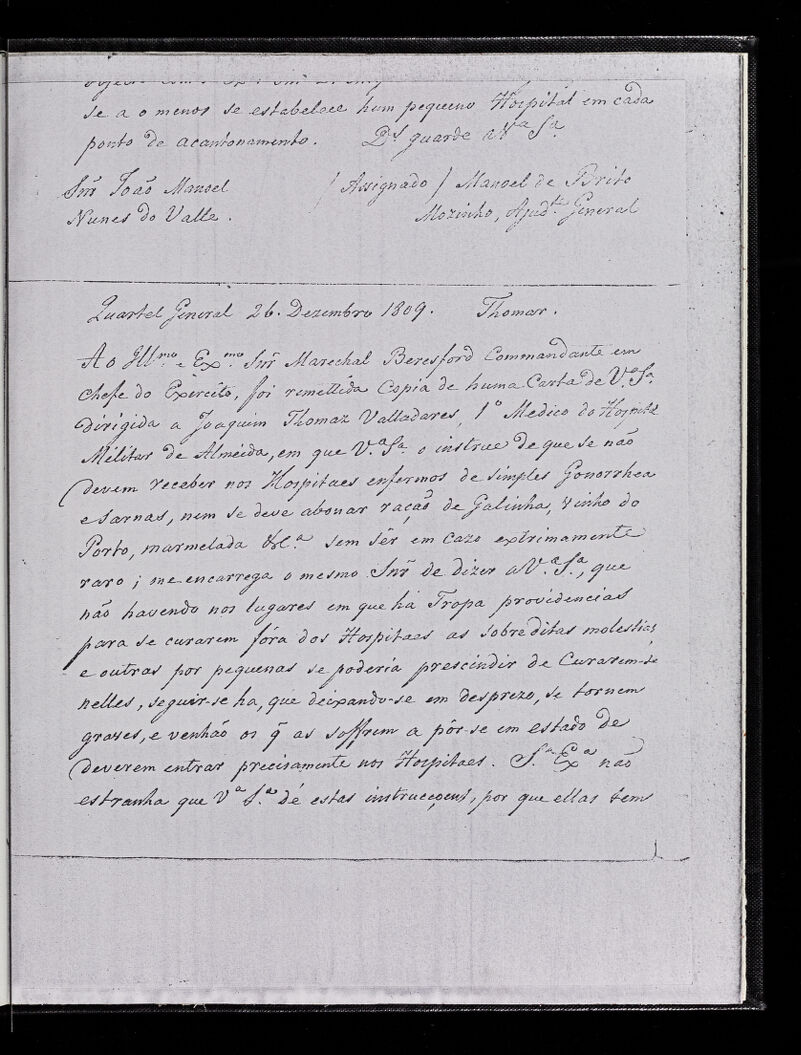 se a o menos se estabelece hum pequeno Hospital em cada
ponto de acantonamento. Ds guarde a Va Sa.
Snr João Manoel / Assignado / Manoel de Brito
Nunes do Valle. Mozinho, Ajudte General
Quartel General 26. Dezembro 1809. Thomar.
Ao Illmo e Exmo Snr Marechal Beresford Commandante em
chefe do Exercito, foi remettida Copia de huma Carta de V.a Sa.
dirigida a Joaquim Thomaz Valladares, 1o Medico do Hospital
Militar de Almeida, em que V.a Sa. o instrue de que se não
devem receber nos Hospitaes enfermos de simples Gonorrhea
e sarnas, nem se deve abonar ração de Galinha, vinho do
Porto, marmelada &c.a sem sêr em cazo extrimamente
raro; me encarrega o mesmo Snr de dizer a V.a Sa., que
não havendo nos lugares em que há Tropa providencias
para se curarem fóra dos Hospitaes as sobreditas molestias
e outras por pequenas se poderia prescindir de Curarem-se
nelles, seguir-se ha, que deixando-se em desprezo, se tornem
graves, e venhão os q̃ as soffrem a pôr-se em estado de
deverem entrar precisamente nos Hospitaes. S.a Exa não
estranha que Va S.a dé estas instrucçoens, por que ellas tem